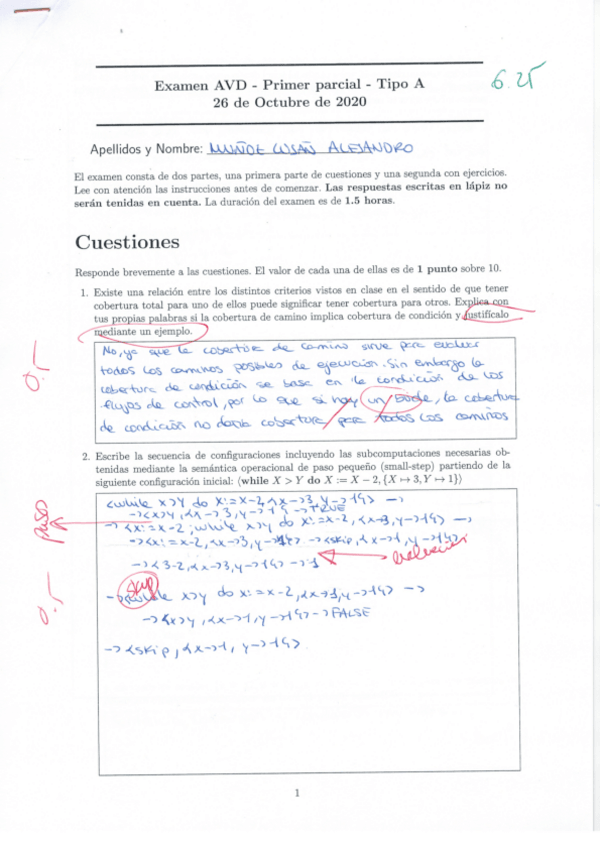 Examen AVD - Primer parcial - Tipo A
26 de Octubre de 2020
6.25
Apellidos y Nombre: MUÑOZ LUSAÑ ALEJANDRO
El examen consta de dos partes, una primera parte de cuestiones y una segunda con ejercicios.
Lee con atención las instrucciones antes de comenzar. Las respuestas escritas en lápiz no
serán tenidas en cuenta. La duración del examen es de 1.5 horas.
Cuestiones
Responde brevemente a las cuestiones. El valor de cada una de ellas es de 1 punto sobre 10.
1. Existe una relación entre los distintos criterios vistos en clase en el sentido de que tener
cobertura total para uno de ellos puede significar tener cobertura para otros. Explica con
tus propias palabras si la cobertura de camino implica cobertura de condición y justifícalo
mediante un ejemplo.
0.5
No, ya que la cobertura de camino sirve para evaluar
todos los caminos posibles de ejecución. Sin embargo la
cobertura de condición se basa en la condición de los
flujos de control, por lo que si hay un, la cobertura
de condición no daría cobertura para todos los caminos
2. Escribe la secuencia de configuraciones incluyendo las subcomputaciones necesarias ob-
tenidas mediante la semántica operacional de paso pequeño (small-step) partiendo de la
siguiente configuración inicial: ⟨while X > Y do X := X − 2, {X ↦ 3, Y ↦ 1}⟩
0.5 paso
<while x>y do x:=x-2, {x->3, y->1}> ->
-> <x>y, {x->3, y->1}> -> TRUE
-> <x:=x-2; while x>y do x:=x-2, {x->3, y->1}> ->
-> <x:=x-2, {x->3, y->1}> -> <skip, {x->1, y->1}>
-> <3-2, {x->3, y->1}> -> 1
skip
-> <while x>y do x:=x-2, {x->1, y->1}> ->
-> <x>y, {x->1, y->1}> -> FALSE
-> <skip, {x->1, y->1}>
1